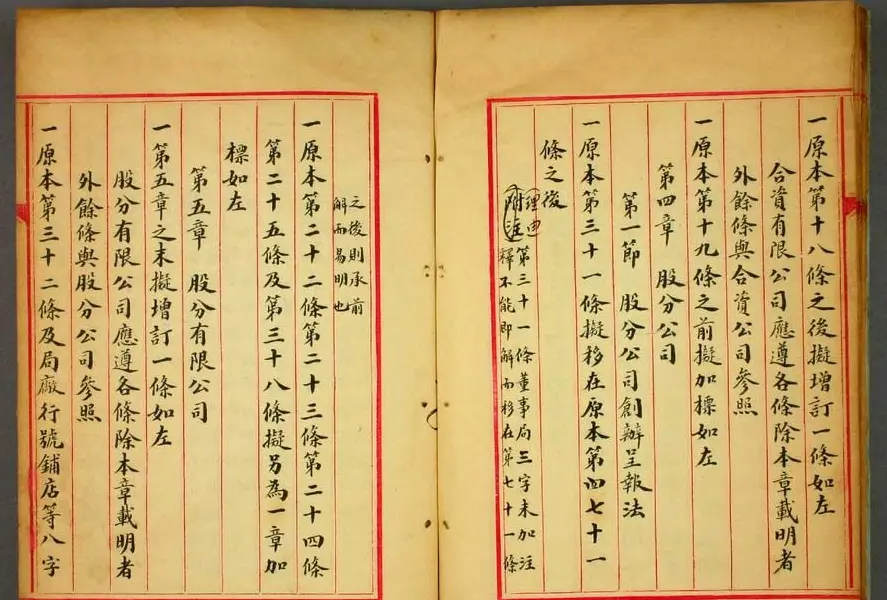 一原本第十八條之後擬增訂一條如左
合資有限公司應遵各條除本章載明者
外餘條與合資公司參照
一原本第十九條之前擬加標如左
第四章 股分公司
第一節 股分公司創辦呈報法
一原本第三十一條擬移在原本第四七十一
條之後
理由
附注
第三十一條董事局三字未加注
釋不能即解而移在第七十一條
之後則承前
解而易明也
一原本第二十二條第二十三條第二十四條
第二十五條及第三十八條擬另為一章加
標如左
第五章 股分有限公司
一第五章之末擬增訂一條如左
股分有限公司應遵各條除本章載明者
外餘條與股分公司參照
一原本第三十二條及局廠行號鋪店等八字